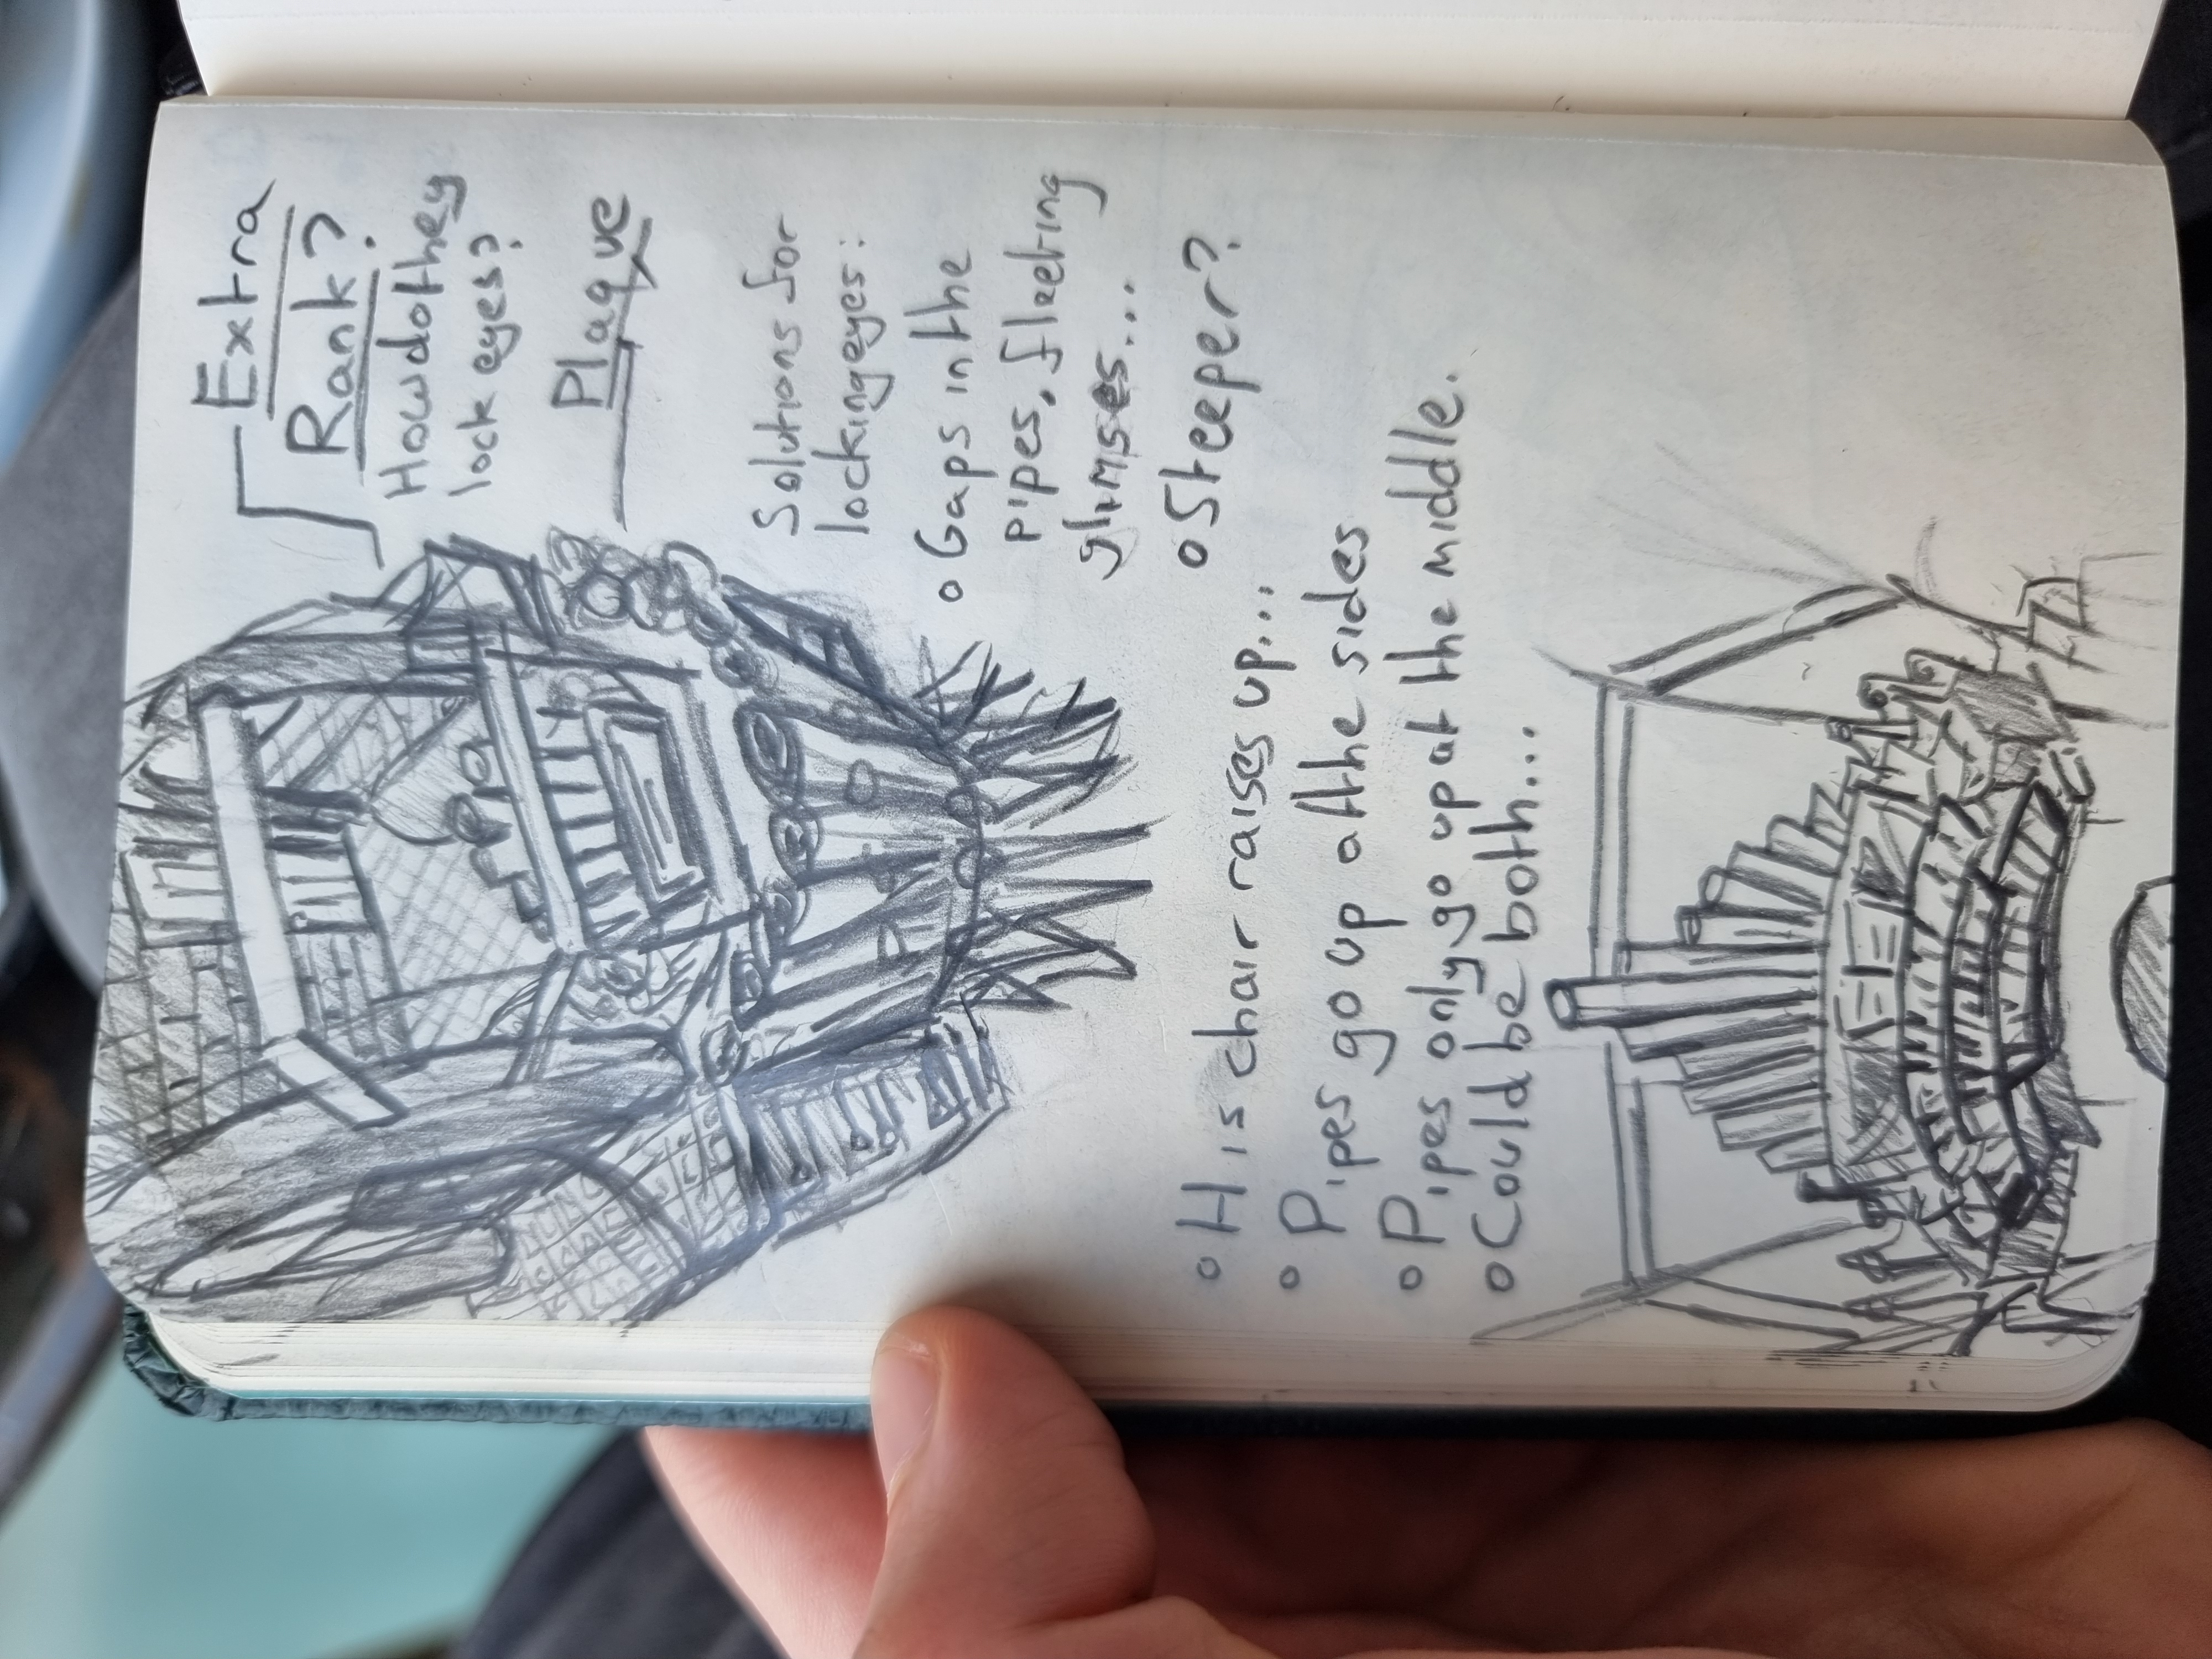 Extra
Rank?
How do they
lock eyes?
Plaque
Solutions for
locking eyes:
o Gaps in the
pipes, fleeting
glimses...
o Steeper?
o His chair raises up...
o Pipes go up at the sides
o Pipes only go up at the middle.
o Could be both...